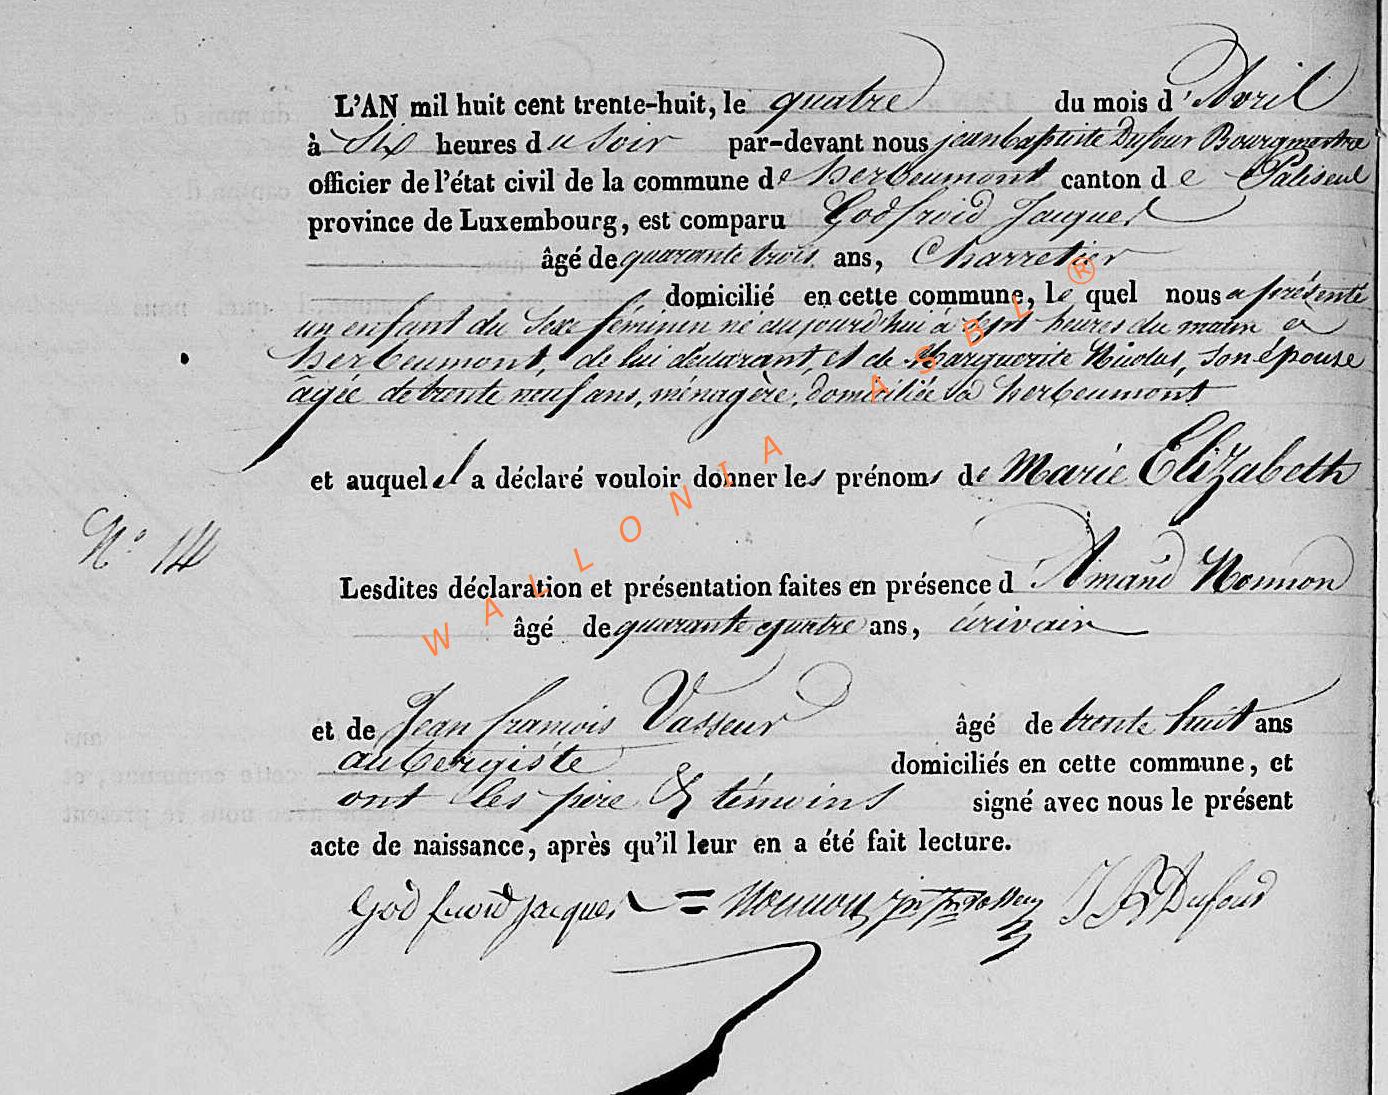 L'AN mil huit cent trente-huit, le quatre du mois d'Avril
à Six heures du Soir par-devant nous jean baptiste Dufour Bourgmestre
officier de l'état civil de la commune de herbeumont canton de Paliseul
province de Luxembourg, est comparu Godfroid Jacques
âgé de quarante trois ans, Charretier
domicilié en cette commune, le quel nous a présenté
un enfant du Sexe féminin né aujourd'hui à Sept heures du matin à
herbeumont, de lui déclarant, et de Marguerite Nicolas, Son épouse
âgée de trente neuf ans, ménagère, domiciliée à herbeumont
et auquel il a déclaré vouloir donner les prénoms de Marie Elizabeth
N° 14
Lesdites déclaration et présentation faites en présence d'Amand Nonnon
âgé de quarante quatre ans, écrivain
et de Jean francois Vasseur âgé de trente huit ans
aubergiste domiciliés en cette commune, et
ont les père & témoins signé avec nous le présent
acte de naissance, après qu'il leur en a été fait lecture.
Godfroid jacques Nonnon jn fr Vasseur J B Dufour
WALLONIA ASBL ®